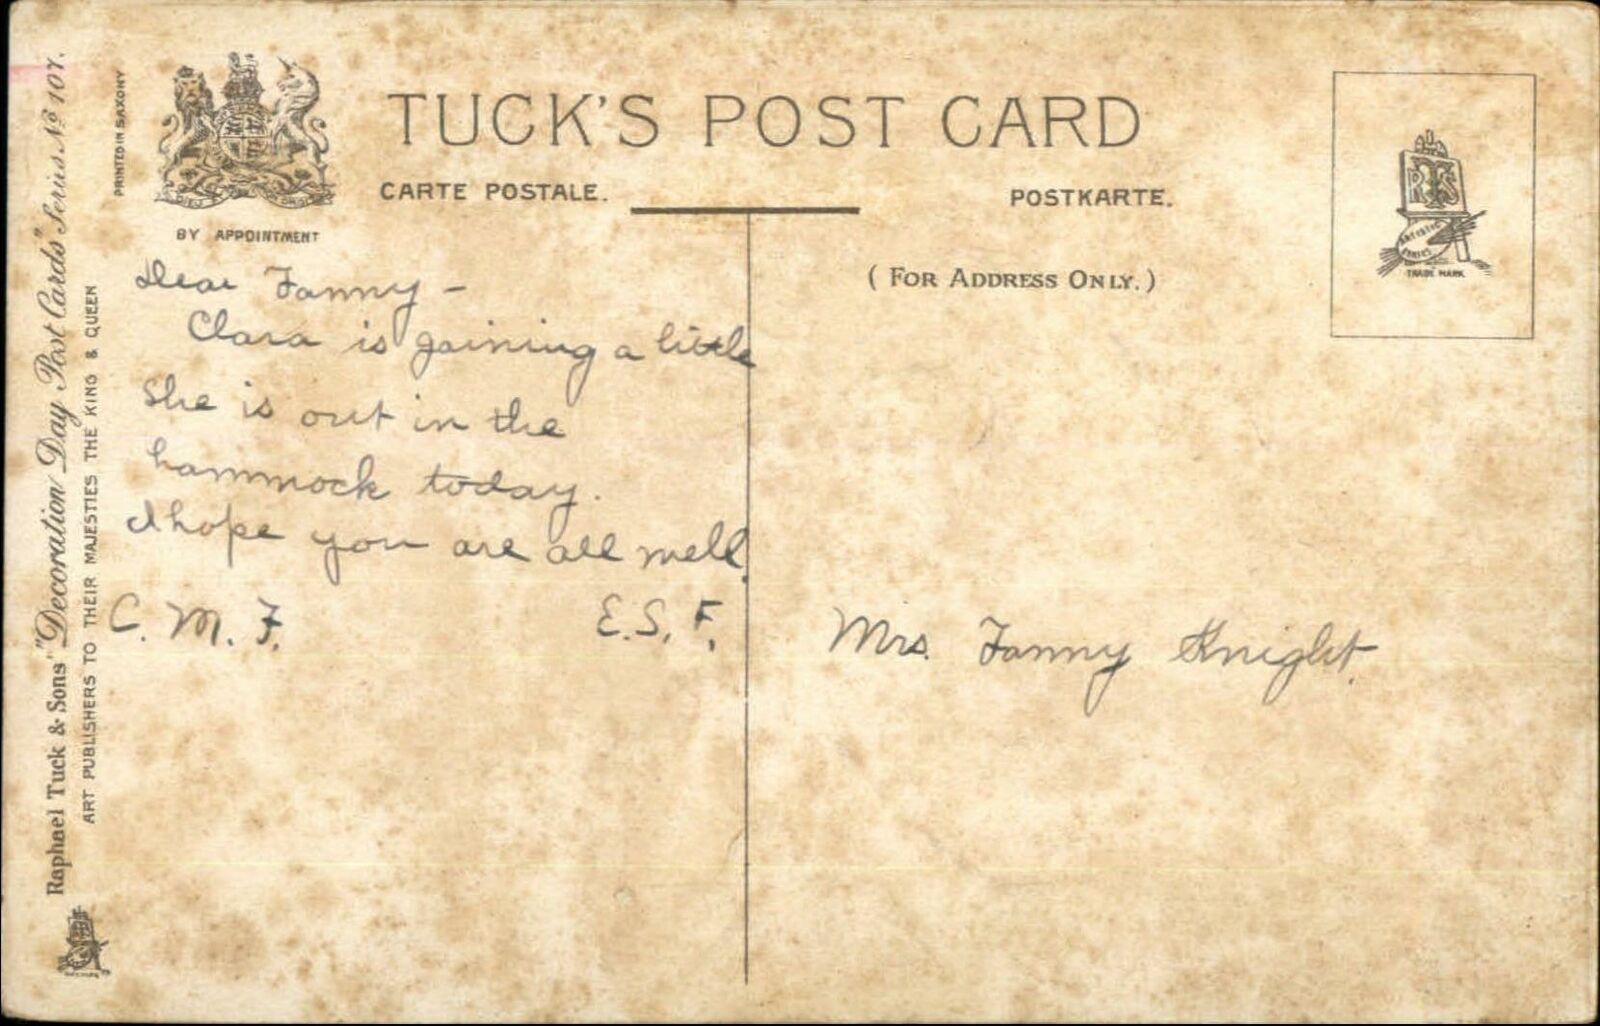 Raphael Tuck & Sons' "Decoration Day Post Cards" Series No 107.
ART PUBLISHERS TO THEIR MAJESTIES THE KING & QUEEN
PRINTED IN SAXONY
BY APPOINTMENT
TUCK'S POST CARD
CARTE POSTALE.
POSTKARTE.
(FOR ADDRESS ONLY.)
TRADE MARK
Dear Fanny -
Clara is gaining a little
She is out in the
hammock today.
I hope you are all well.
C. M. F. E. S. F.
Mrs. Fanny Knight.